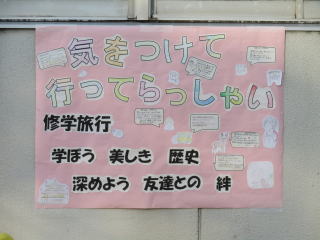 気をつけて
行ってらっしゃい
修学旅行
学ぼう 美しき 歴史
深めよう 友達との 絆